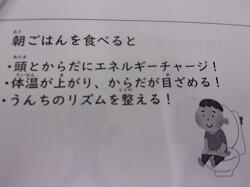 朝ごはんを食べると
・頭とからだにエネルギーチャージ！
・体温が上がり、からだが目ざめる！
・うんちのリズムを整える！